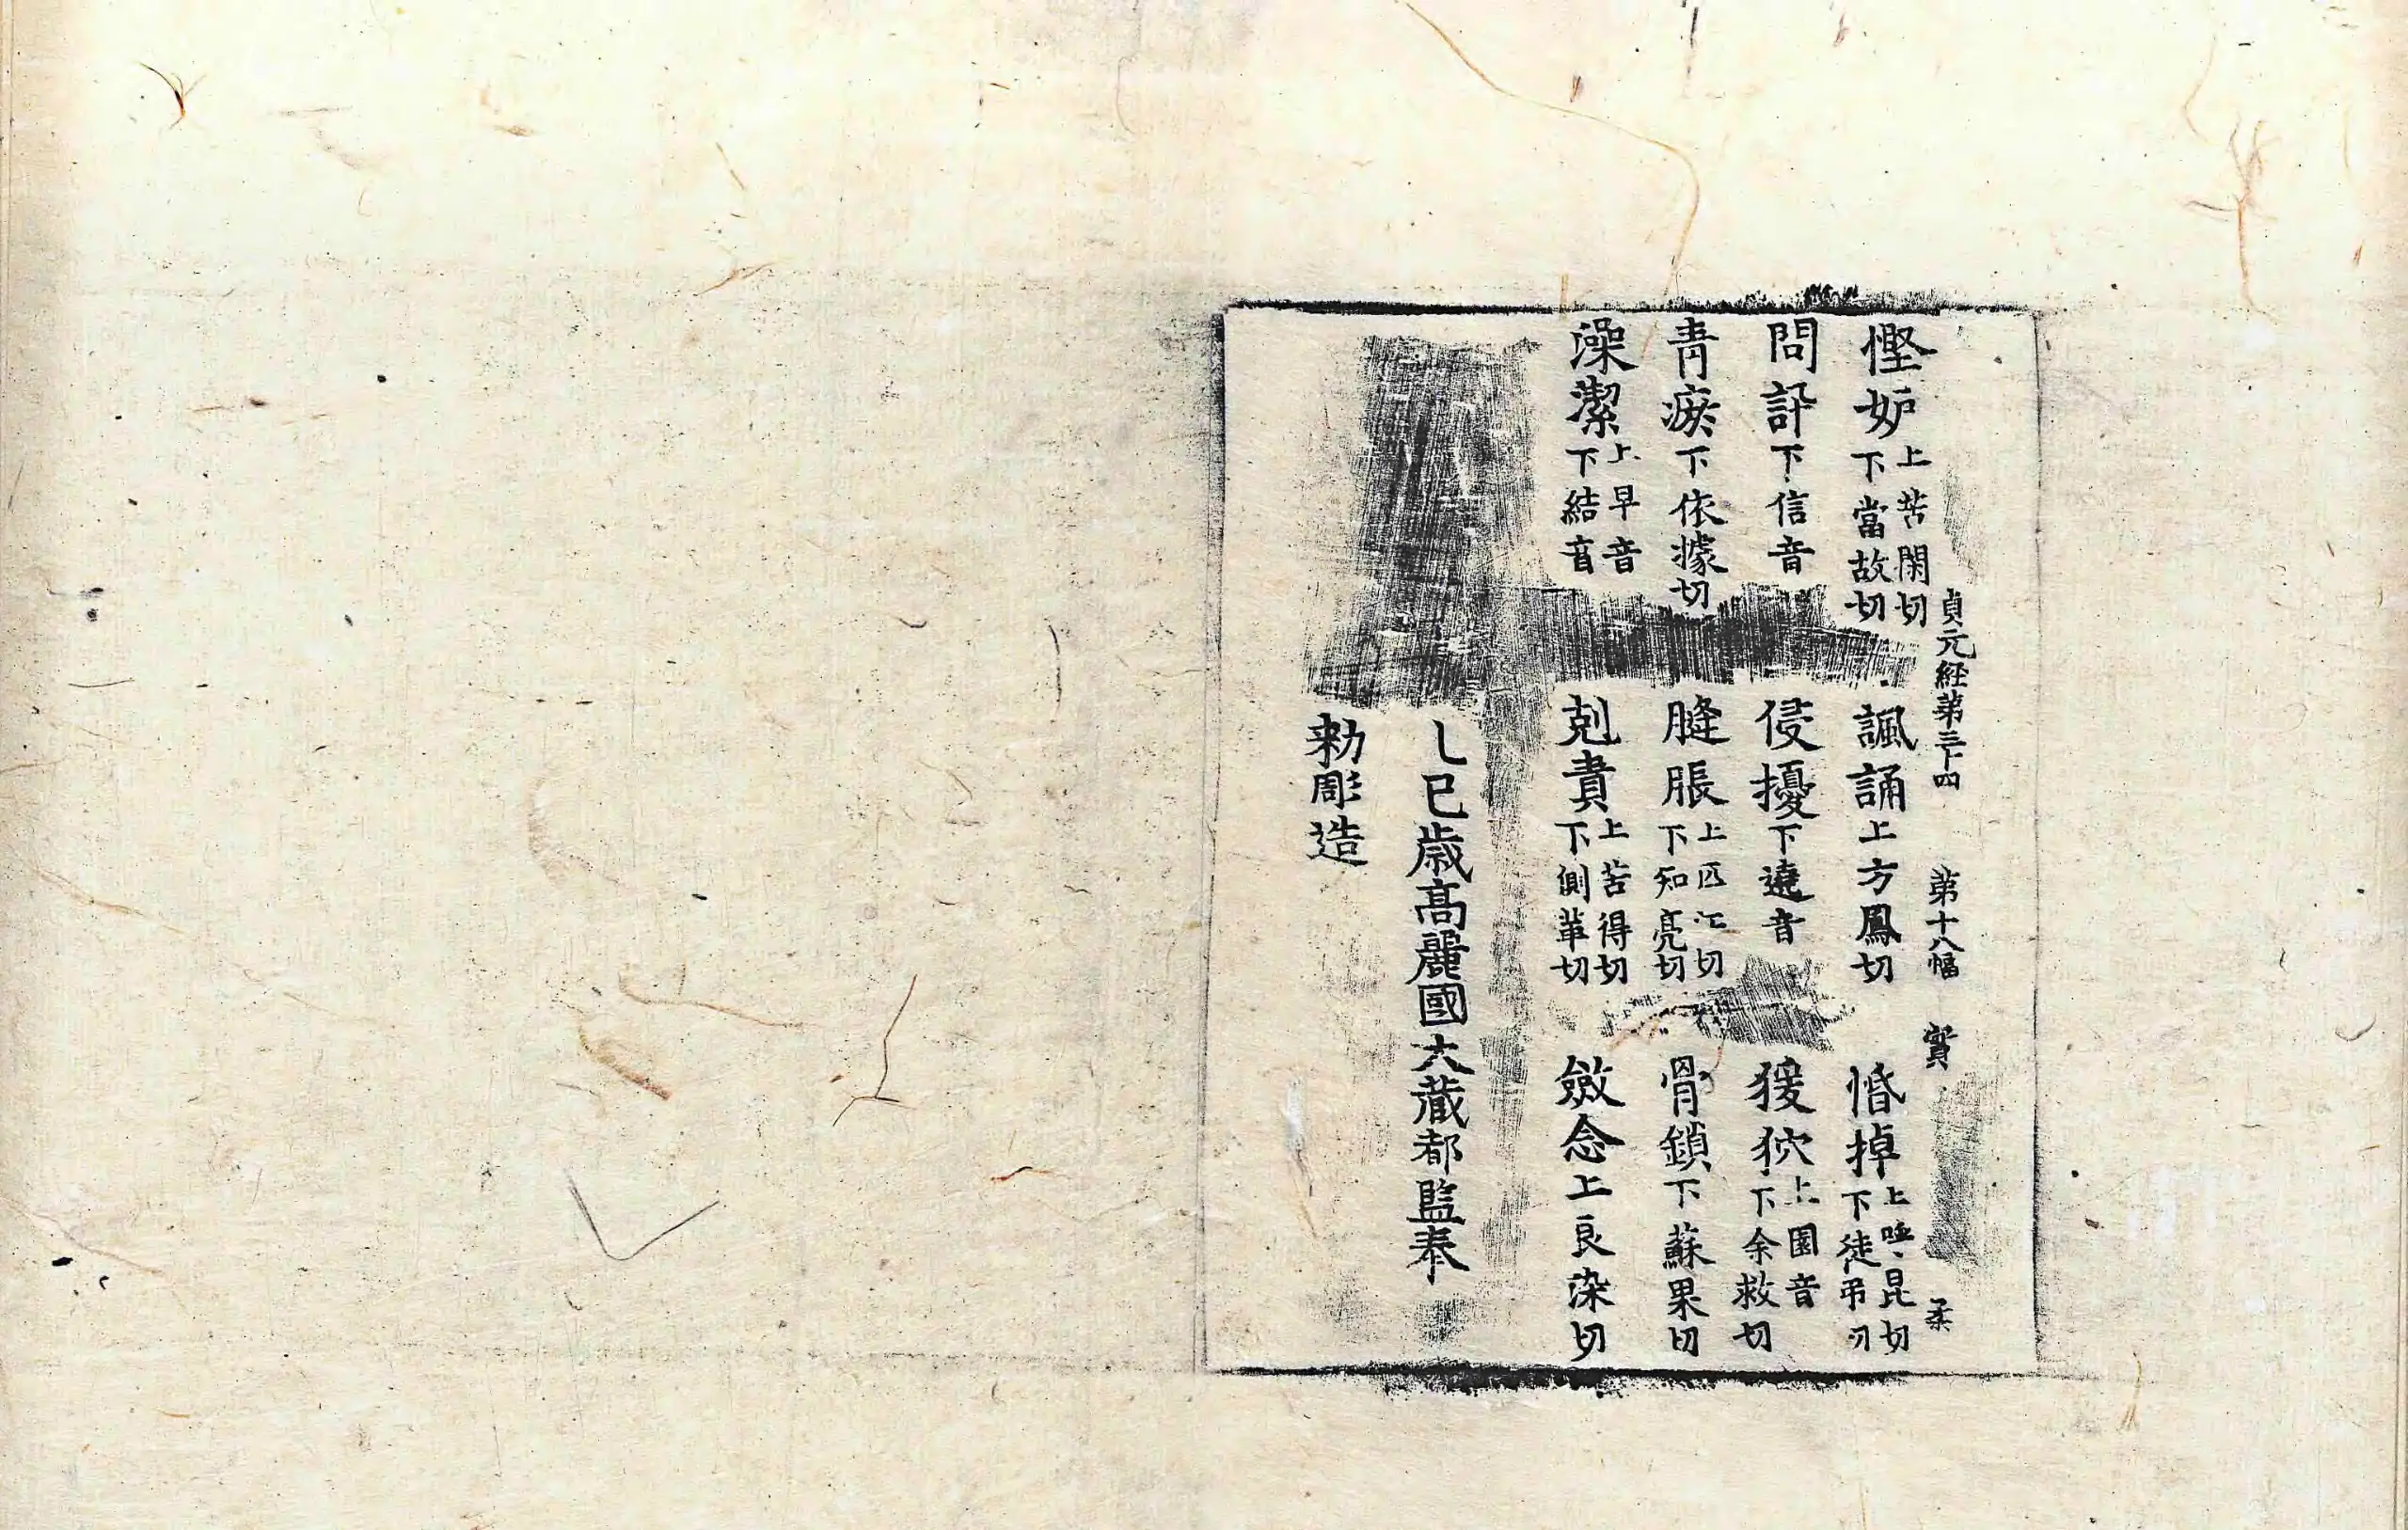 貞元経第三十四 第十八幅 實 柔
慳妒上苦閑切下當故切 諷誦上方鳳切 惛掉上呼昆切下徒弔切
問訃下信音 侵擾下遶音 猨狖上園音下余救切
青瘀下依據切 膖脹上匹江切下知亮切 骨鎖下蘇果切
澡潔上早音下結音 剋責上苦得切下側革切 斂念上良染切
乚巳歳高麗國大藏都監奉
勑彫造